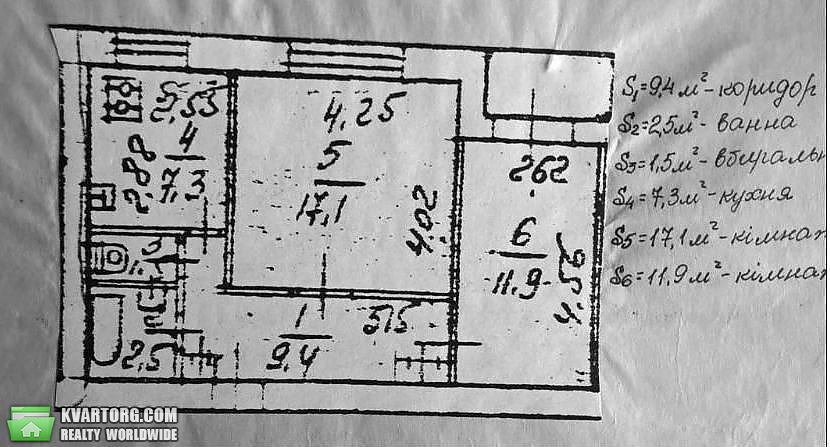 2,53
4
7,3
2,88
4,25
5
17,1
4,02
2,62
6
11,9
4,56
3
2,5
1
9,4
5,15
S₁=9,4м²-коридор
S₂=2,5м²-ванна
S₃=1,5м²-вбираль
S₄=7,3м²-кухня
S₅=17,1м²-кімнат
S₆=11,9м²-кімнат
KVARTORG.COM
REALTY WORLDWIDE